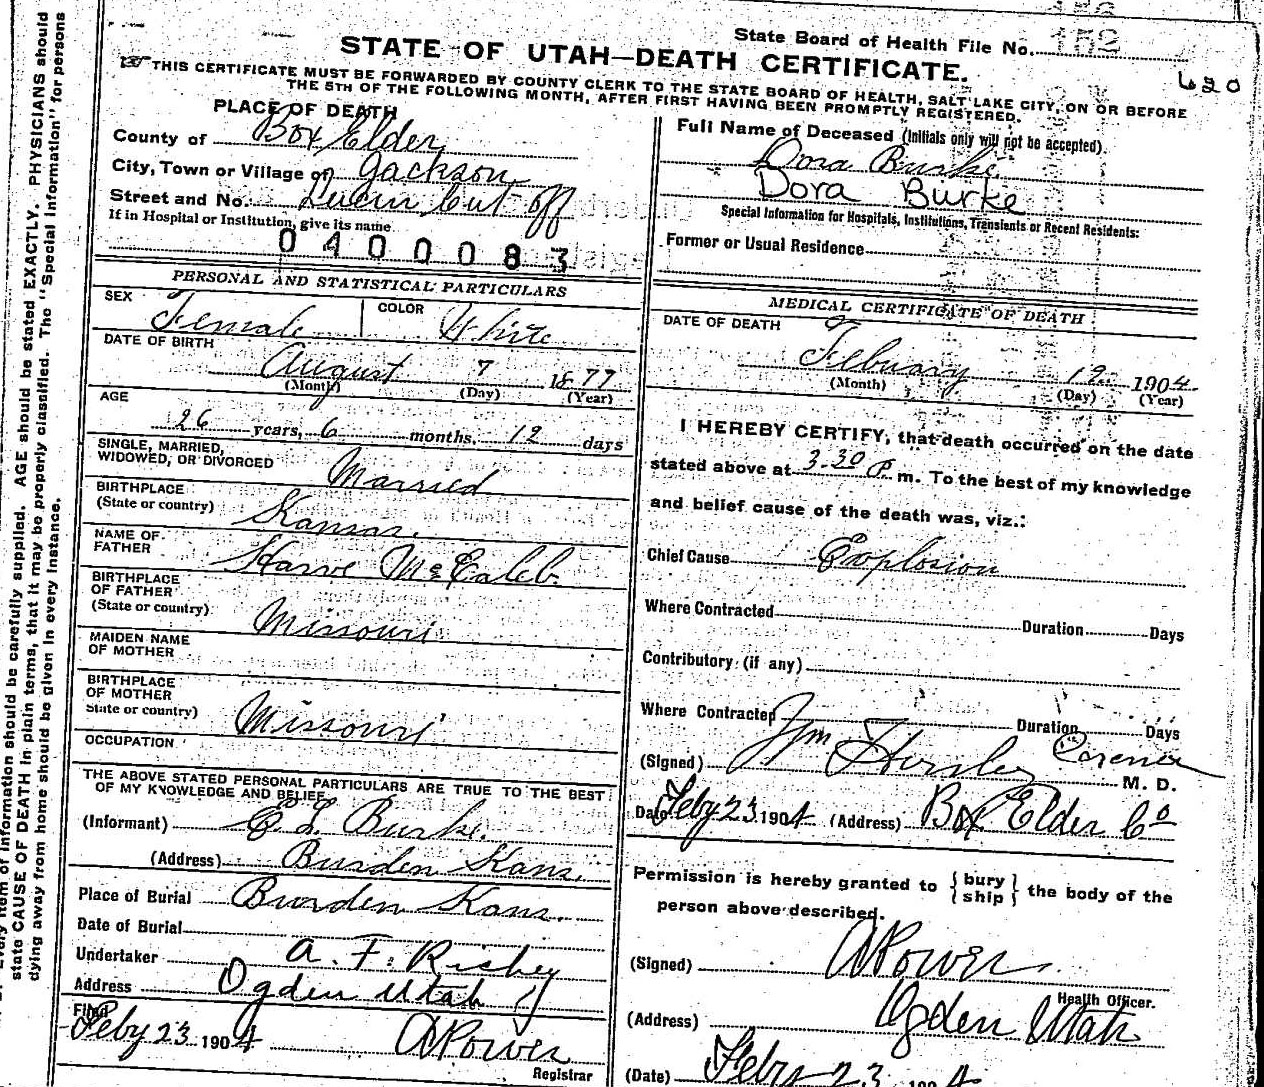 152
State Board of Health File No. 152
STATE OF UTAH—DEATH CERTIFICATE.
620
THIS CERTIFICATE MUST BE FORWARDED BY COUNTY CLERK TO THE STATE BOARD OF HEALTH, SALT LAKE CITY, ON OR BEFORE
THE 5TH OF THE FOLLOWING MONTH, AFTER FIRST HAVING BEEN PROMPTLY REGISTERED.
PLACE OF DEATH
County of Box Elder
City, Town or Village of Jackson
Street and No. Lucin Cut off
If in Hospital or Institution, give its name
0400083
PERSONAL AND STATISTICAL PARTICULARS
SEX Female COLOR White
DATE OF BIRTH
August 7 1877
(Month) (Day) (Year)
AGE
26 years, 6 months, 12 days
SINGLE, MARRIED,
WIDOWED, OR DIVORCED Married
BIRTHPLACE
(State or country) Kansas.
NAME OF
FATHER Harve McCaleb.
BIRTHPLACE
OF FATHER
(State or country) Missouri
MAIDEN NAME
OF MOTHER
BIRTHPLACE
OF MOTHER
State or country) Missouri
OCCUPATION
THE ABOVE STATED PERSONAL PARTICULARS ARE TRUE TO THE BEST
OF MY KNOWLEDGE AND BELIEF
(Informant) C. L. Burke.
(Address) Burden Kans.
Place of Burial Burden Kans.
Date of Burial
Undertaker A. F. Richey
Address Ogden Utah
Filed
Feby 23 1904 A Power
Registrar
Full Name of Deceased (Initials only will not be accepted).
Dora Burke
Dora Burke
Special Information for Hospitals, Institutions, Transients or Recent Residents:
Former or Usual Residence
MEDICAL CERTIFICATE OF DEATH
DATE OF DEATH
Febuary 19 1904
(Month) (Day) (Year)
I HEREBY CERTIFY, that death occurred on the date
stated above at 3-30 P. m. To the best of my knowledge
and belief cause of the death was, viz.:
Chief Cause Explosion
Where Contracted Duration Days
Contributory (if any)
Where Contracted Duration Days
(Signed) Wm Horsley Coroner M. D.
Date Feby 23 1904 (Address) Box Elder Co
Permission is hereby granted to { bury ship } the body of the
person above described.
(Signed) A Power
Health Officer.
(Address) Ogden Utah
(Date) Feby 23 1904
state CAUSE OF DEATH in plain terms, that it may be properly classified. The "Special Information" for persons
dying away from home should be given in every instance.
Every item of information should be carefully supplied. AGE should be stated EXACTLY. PHYSICIANS should